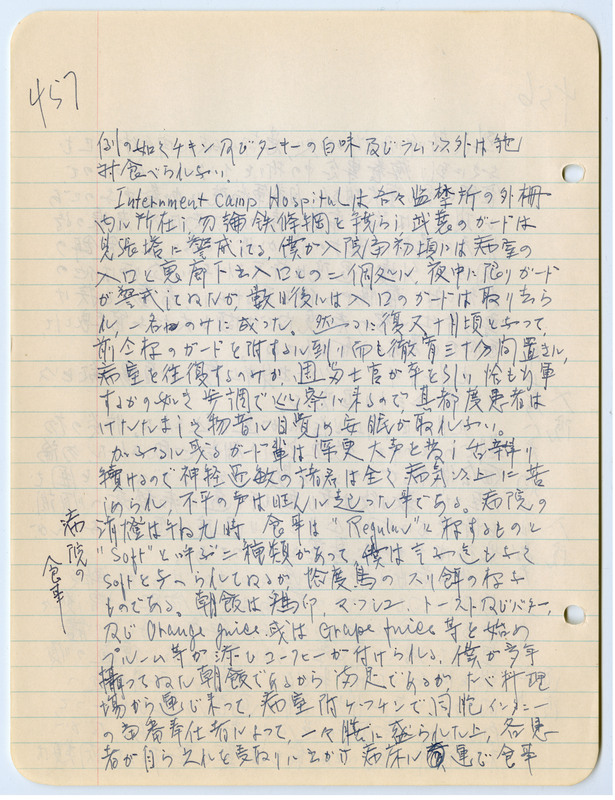 457
例の如くチキン及びターキーの白味及びラム以外は絶
対食べられない。
Internment Camp Hospitalは吾々監禁所の外柵
内に所在し勿論鉄條網を繞らし武装のガードは
見張塔に警戒してる、僕が入院当初頃には病室の
入口と裏廊下出入口との二個処に、夜中に限りガード
が警戒してゐたが、数日後には入口のガードは取り去ら
れ、一名のみに成った。然るに復又十月頃となって、
前同様のガードを附するに到り而も徹宵三十分間置きに、
病室を往復するのみか週番士官が卒を引い恰も行軍
するかの如き歩調で巡察に来るので、其都度患者は
けたたましき物音に目覚め安眠が取れない。
かてて加へて或るガード輩は深更大声を発し舌弁り
続けるので神経過敏の諸君は全く病気以上に苦
しめられ、不平の声は旺んに起こった事である。病院の
消燈は午后九時 食事は"Regular"と称するものと
"Soft"と呼ぶ二種類があって、僕は言ふ迄もなく
Softを与へられてゐるが 恰度鳥のスリ餌の様な
ものである。朝飯は鶏卵、マッシュ、トースト及びバター、
及び Orange juice 或は Grape juice 等を始め
プルーム等が添ひコーヒーが付けられる、僕が多年
摂ってゐた朝飯であるから満足であるが、たべ料理
場から運び来って、病室附キッチンで同胞インタニー
の当番奉仕者によって、一々膳に盛られた上、各患
者が自ら之れを受取りに出かけ 病床に運んで食事
病院の
食事